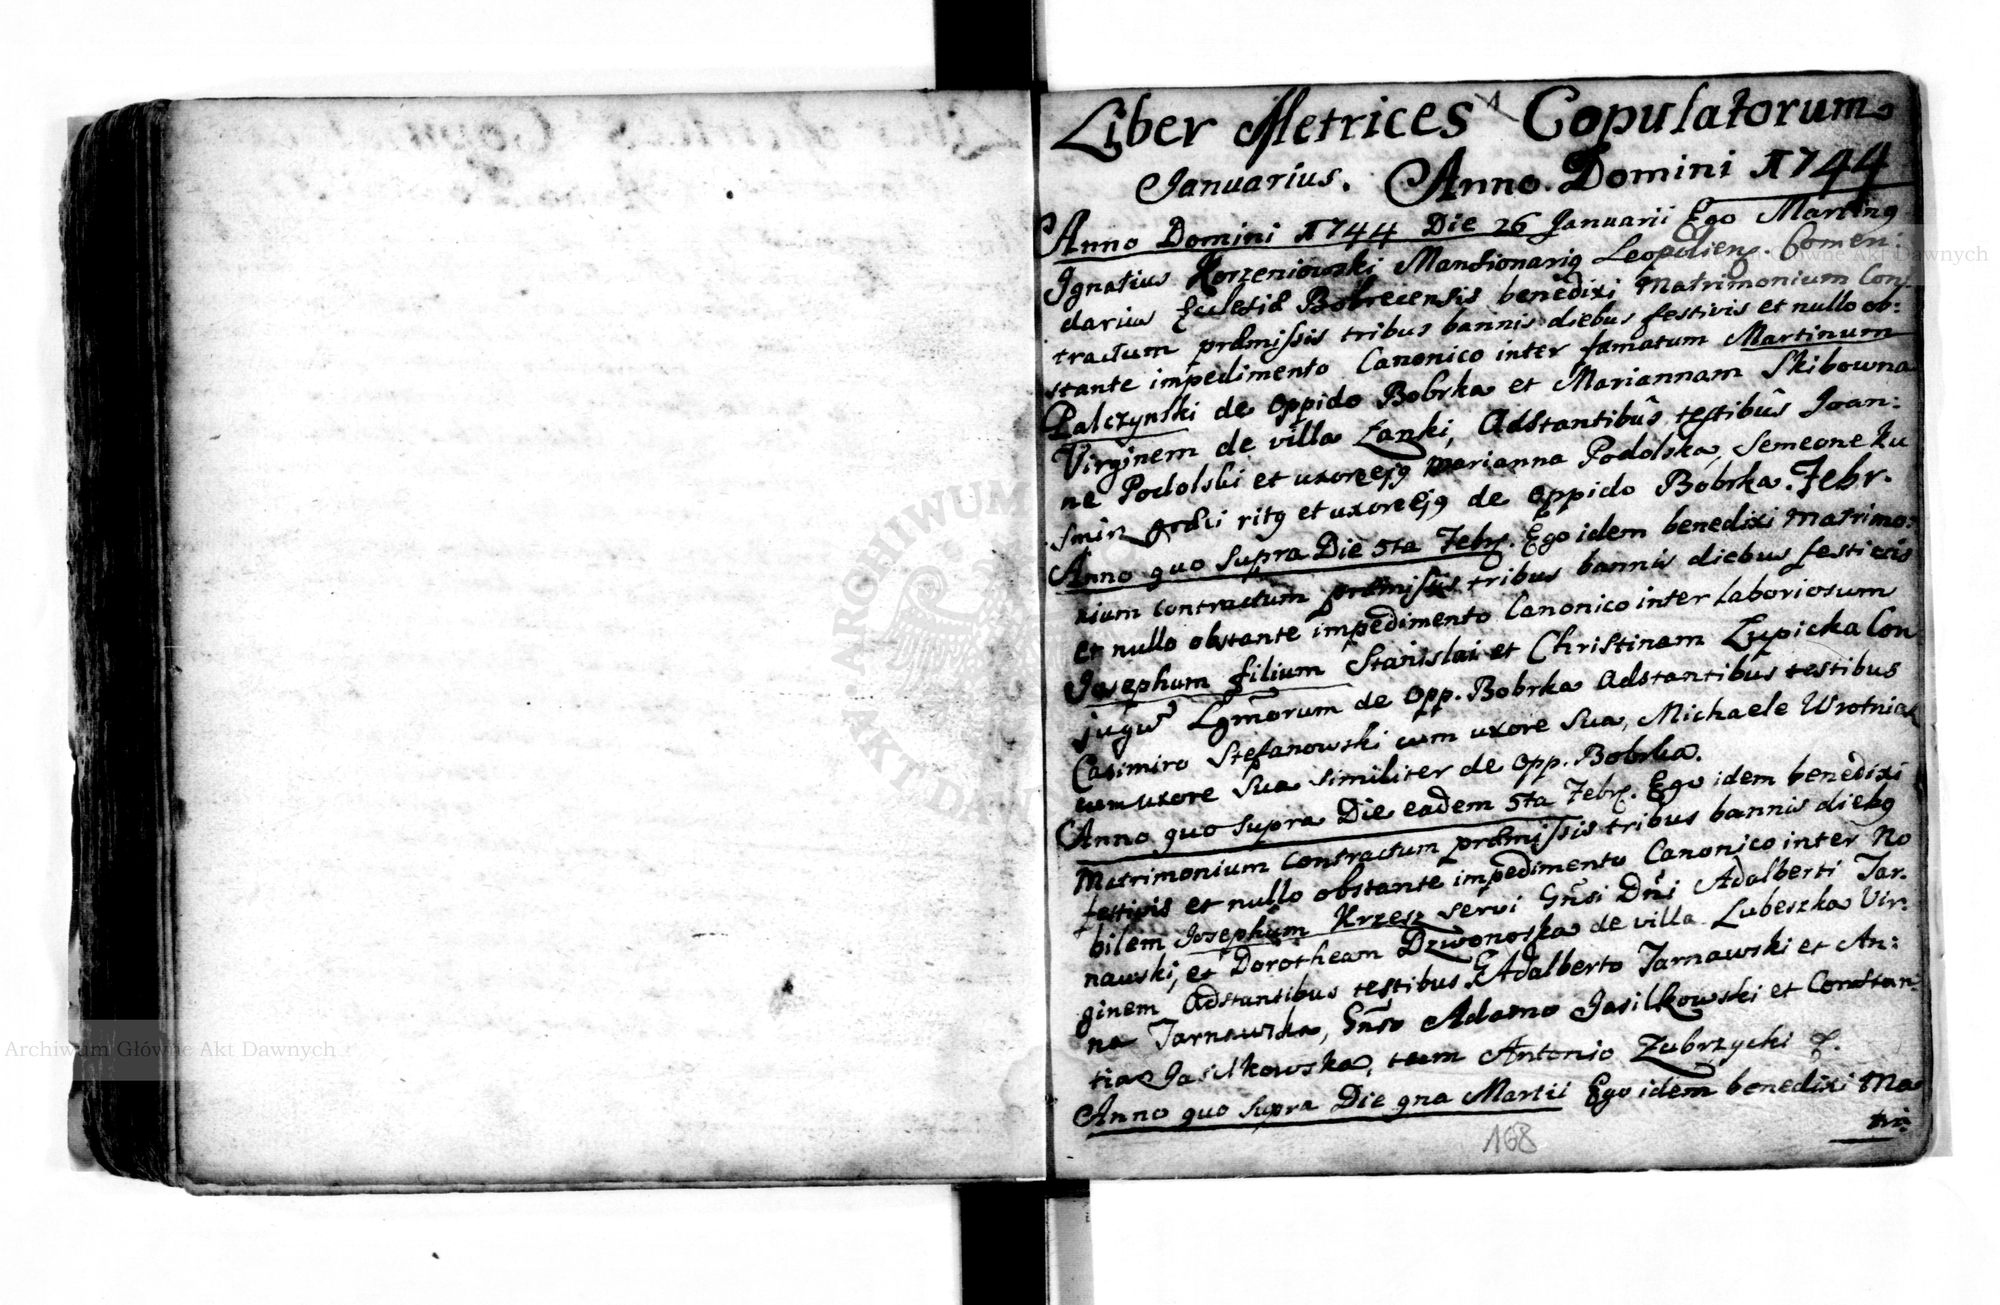 1
Liber Metrices Copulatorum
Januarius. Anno Domini 1744
Anno Domini 1744 Die 26 Januarii Ego Marting
Ignatius Korzeniowski Mansionarig Leopoliens. Comen:
darius Ecclesiæ Bobrecensis benedixi Matrimonium Con-
tractum præmissis tribus bannis diebus festivis et nullo ob:
stante impedimento Canonico inter famatum Martinum
Palczynski de oppido Bobrka et Mariannam Skibowna
Virginem de villa Lanki, Adstantibûs testibûs Joan:
ne Podolski et uxore ejg Marianna Podolska, Semeone Ku
smin græci ritg et uxore ejg de oppido Bobrka. Febr.
Anno quo supra Die 5ta Febr. Ego idem benedixi Matrimo:
nium contractum præmissis tribus bannis diebus festivis
et nullo obstante impedimento Canonico inter Laboriosum
Josephum filium Stanislai et Christinam Lupicka Con
jugu Lgmorum de opp. Bobrka adstantibus testibus
Casimiro Stefanowski cum uxore sua, Michaele Wrotniak
cum uxore sua similiter de opp. Bobrka.
Anno quo supra Die eadem 5ta Febr. Ego idem benedixi
Matrimonium Contractum præmissis tribus bannis diebg
festivis et nullo obstante impedimento Canonico inter No
bilem Josephum Krzesz servi Gnsi Dni Adalberti Tar-
nawski, et Dorotheam Dzwonoska de villa Lubeszka Vir-
ginem Adstantibus testibus G Adalberto Tarnawski et An:
na Tarnawska, Gnso Adamo Jasilkowski et Constan
tia Jasilkowska, tum Antonio Zubrzycki &.
Anno quo supra Die 9na Martii Ego idem benedixi Ma
tri:
168
ARCHIWUM
AKT DAWNYCH
Archiwum Główne Akt Dawnych
Archiwum Główne Akt Dawnych